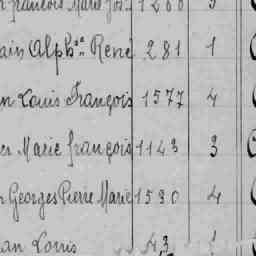 François Marie Jos
ain Alph.se René 281 1
n Louis François 1577 4
er Marie françois 1143 3
n Georges Pierre Marie 1530 4
ean Louis 43